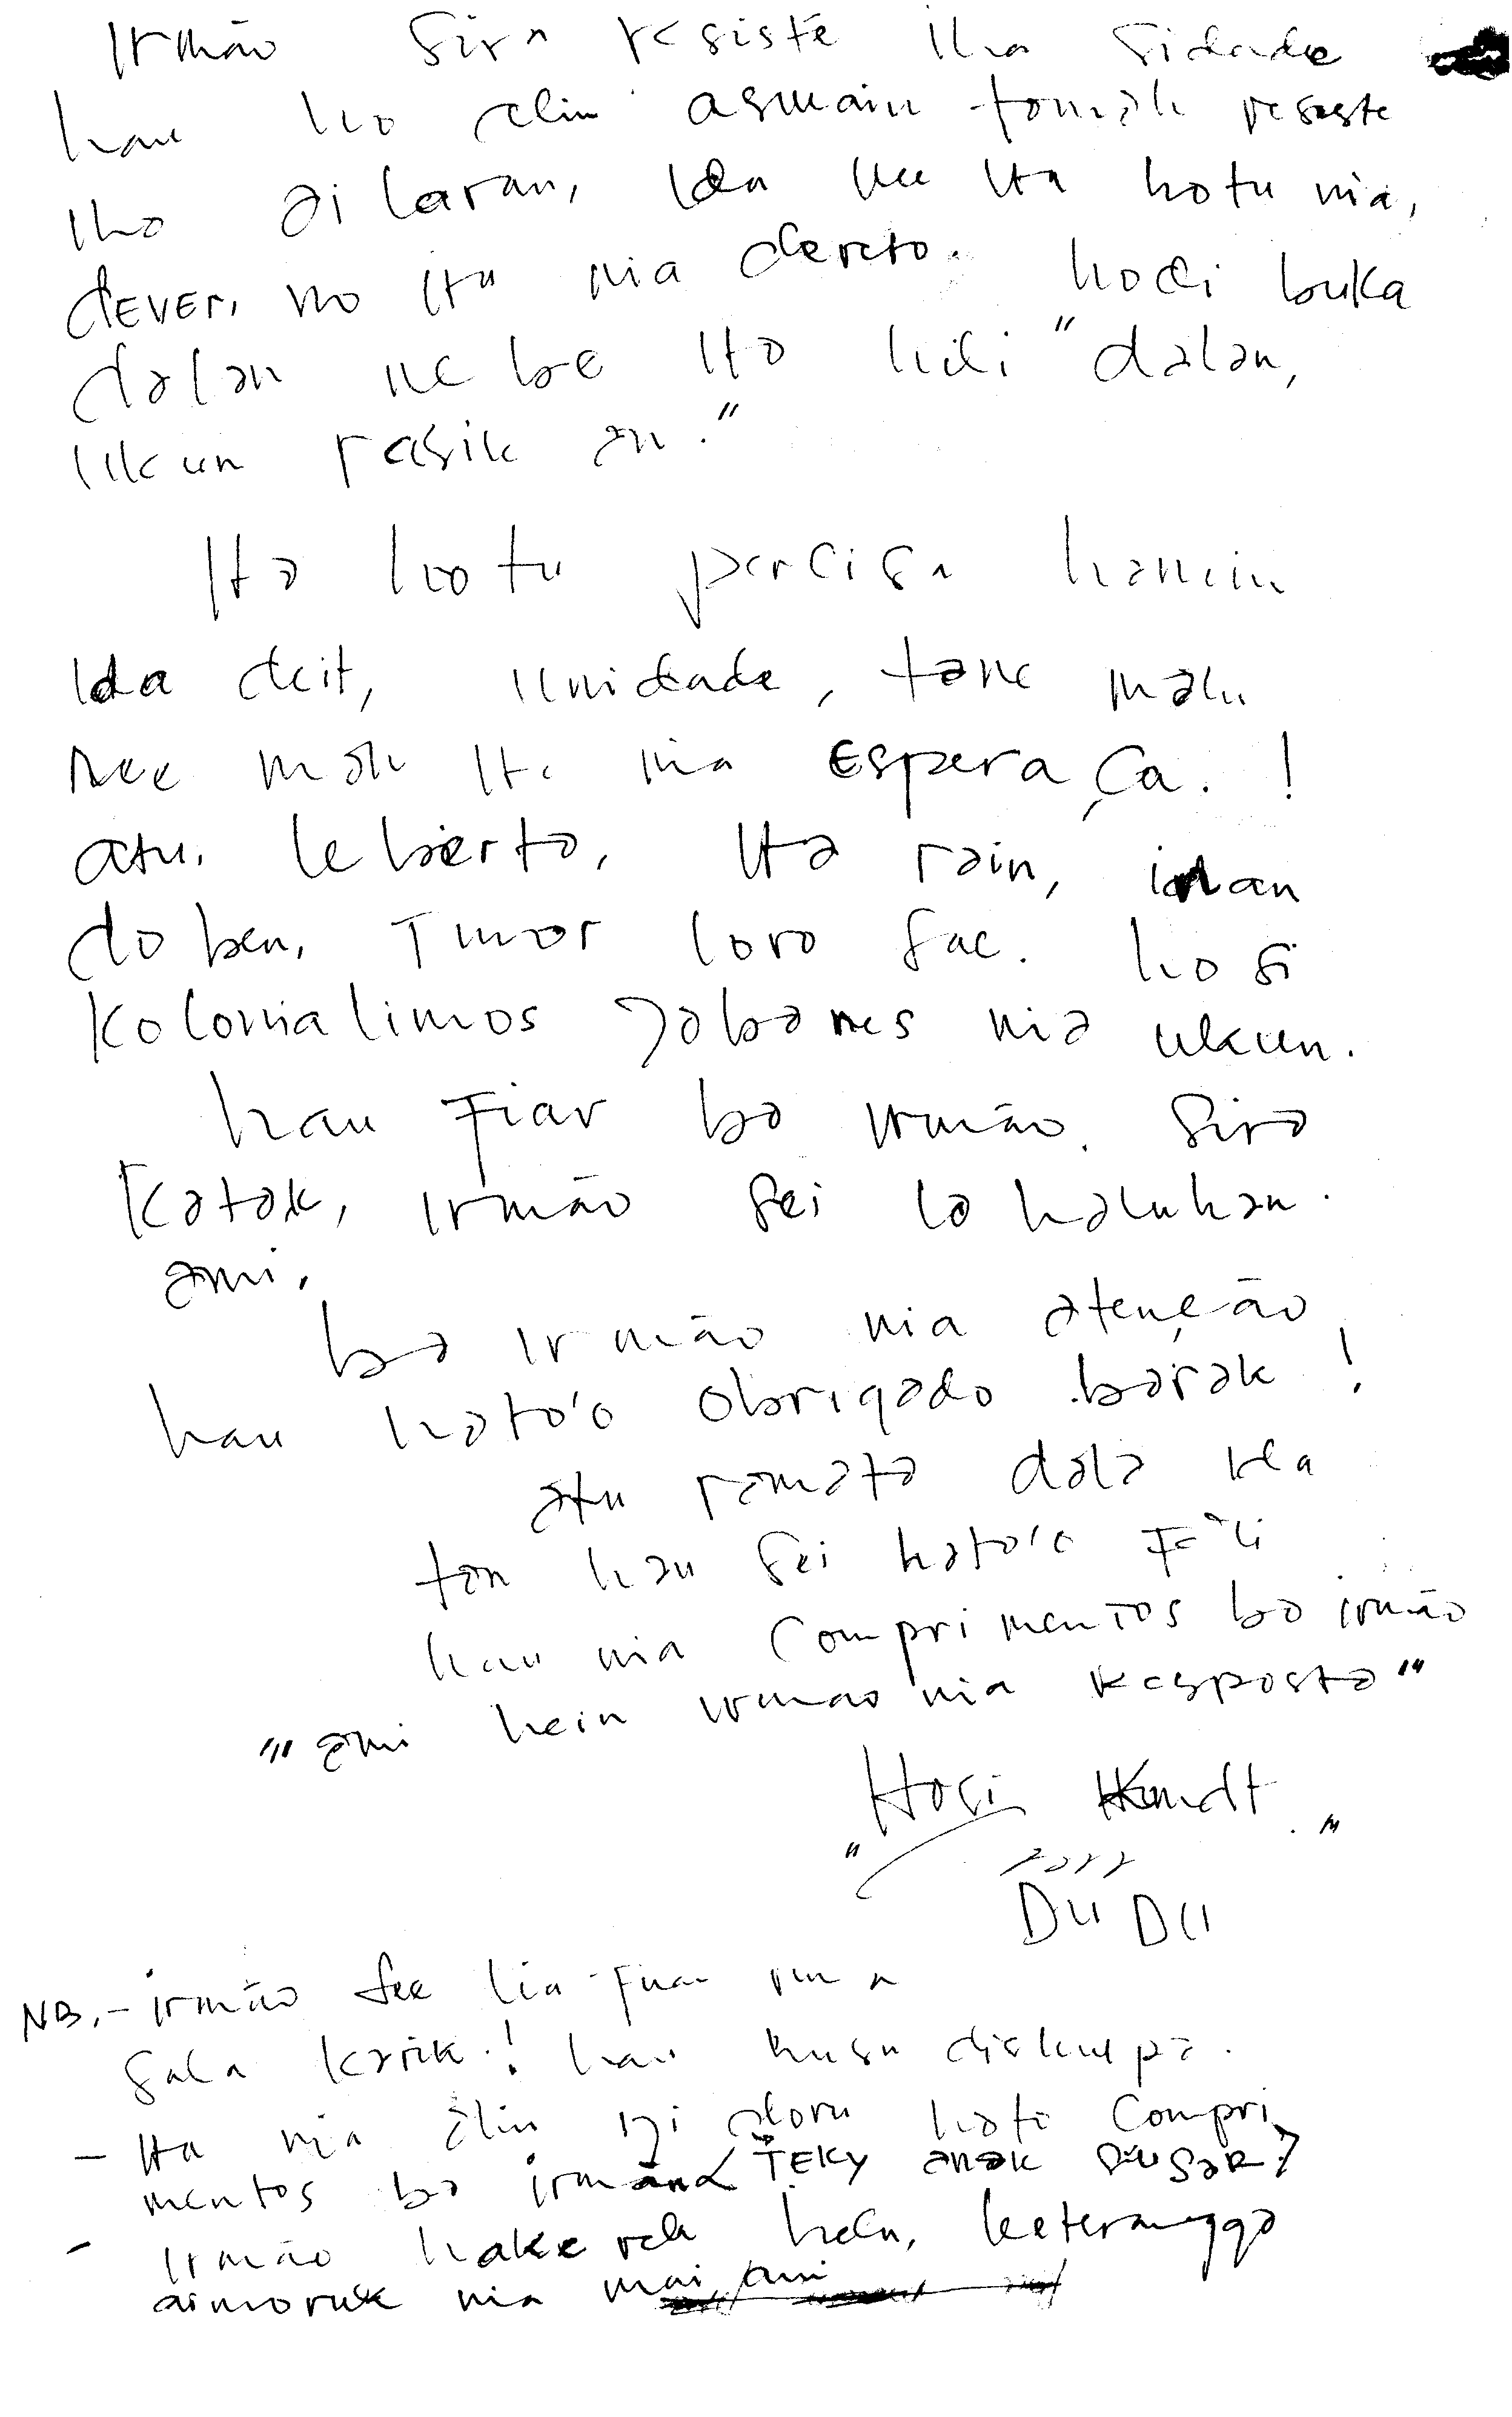 Irmão sira resiste iha sidade
hau ho alin asuain tomak resiste
iha ai laran, Ida nee ita hotu nia,
dever, no ita nia dereto. hodi buka
dalan ne be ita hili "dalan,
Ukun rasik an."
Ita hotu percisa hanoin
Ida deit, unidade, tane malu
nee mak ita nia Esperaça. !
atu. leberta, Ita rain, inan
doben, Timor loro sae. hosi
Kolonialimos Jabanes nia ukun.
hau Fiar ba irmão. sira
Katak, irmão sei la haluhan.
ami,
ba irmão nia atenção
hau hato'o obrigado barak !
atu ramata dala ida
tan hau sei hato'o Fali
hau nia Comprimentos ba irmão
"' ami hein irmao nia Resposta "'
" Hosi . "
DU DU
NB. - irmão see lia-fuan ruma
sala karik.! hau husu diskulpa.
- Ita nia alin Compri
mentos ba irmão TEKY anak SUSAR?
- Irmão hakerek hela, keterangga
aimoruk nia mai ami